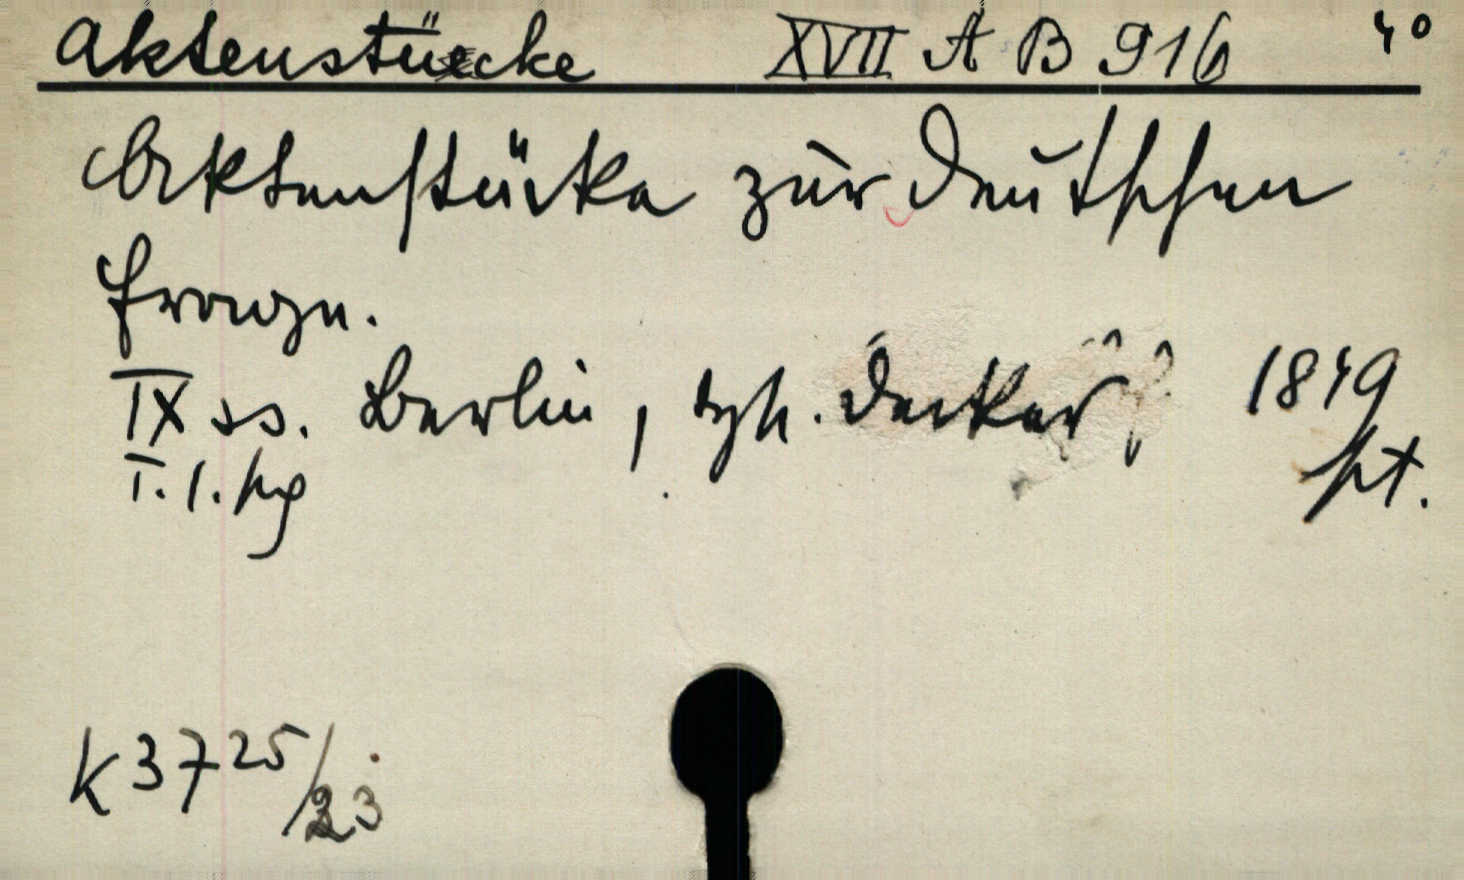 Aktenstücke XVII A B 916 4°
Aktenstücke zur deutschen
Frage.
IX ss. Berlin, typ. Decker, 1849
pt.
I. 1.
K 3725/23